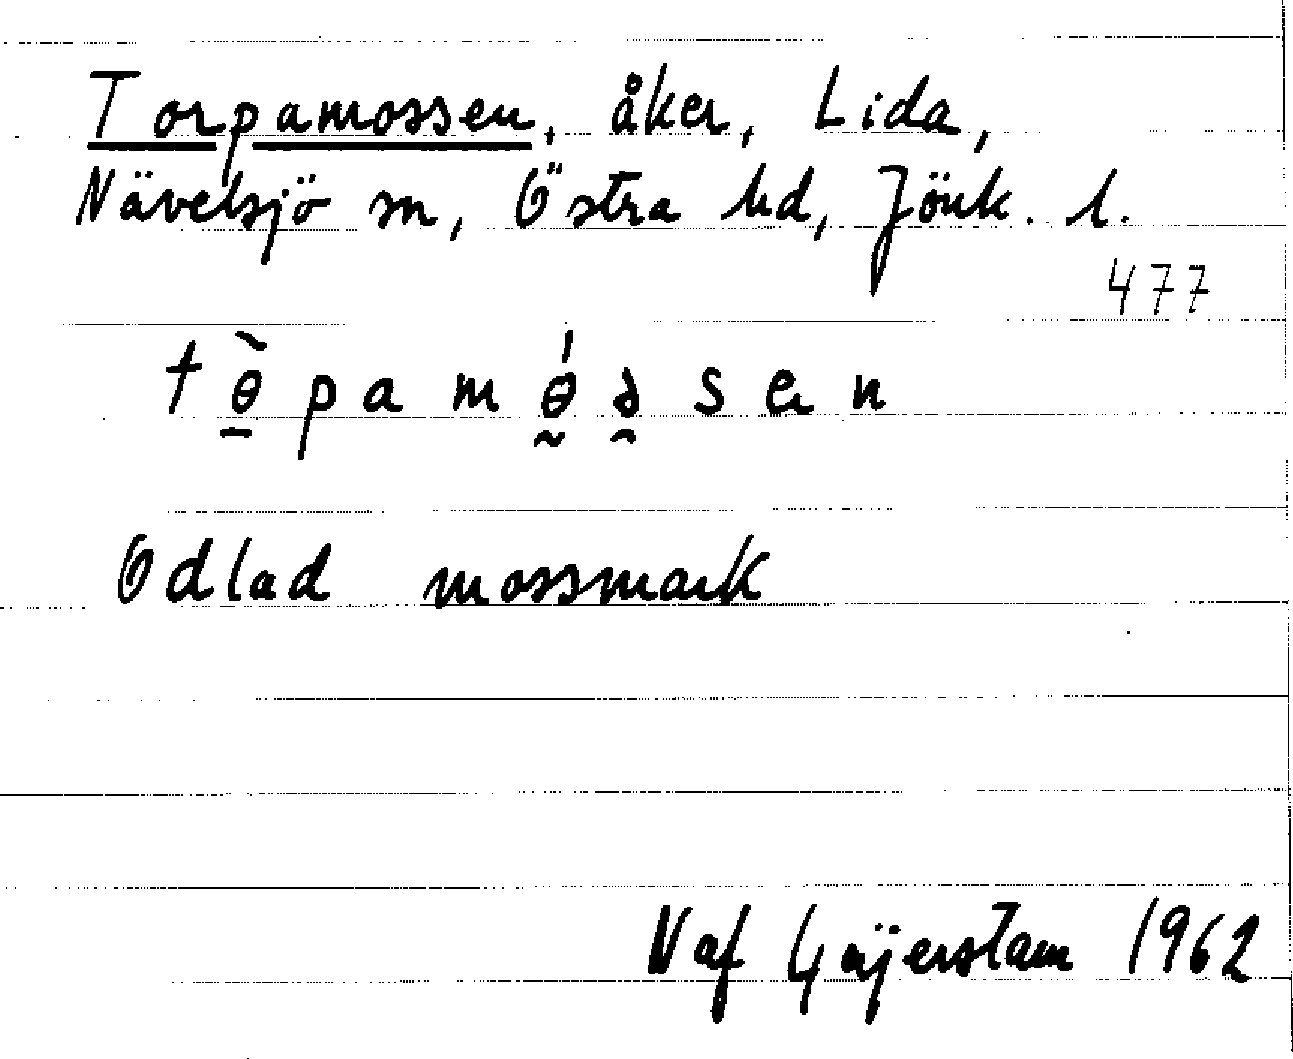 Torpamossen, åker, Lida,
Nävelsjö sn, Östra hd, Jönk. l.
477
Odlad mossmark
N af Geijerstam 1962